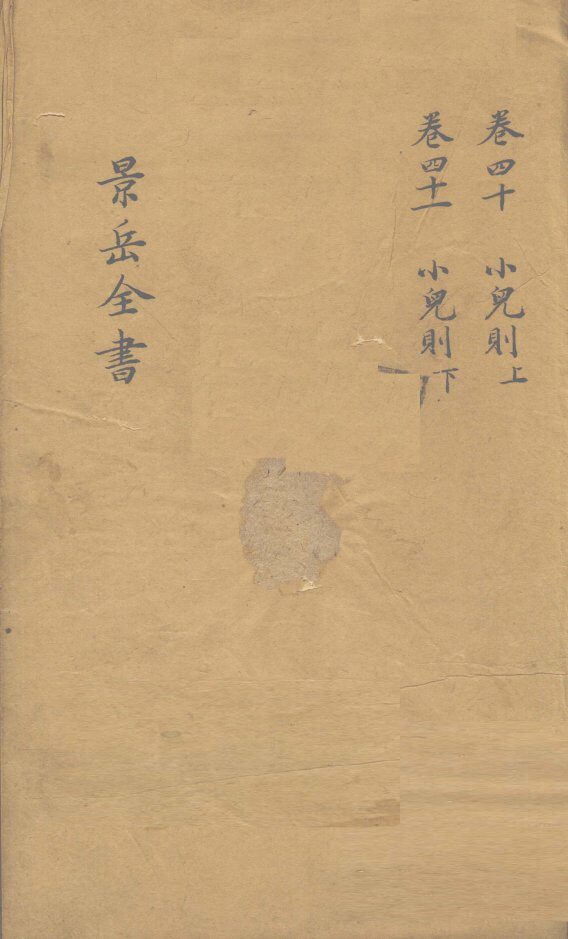 卷四十 小兒則上
卷四十一 小兒則下
景岳全書